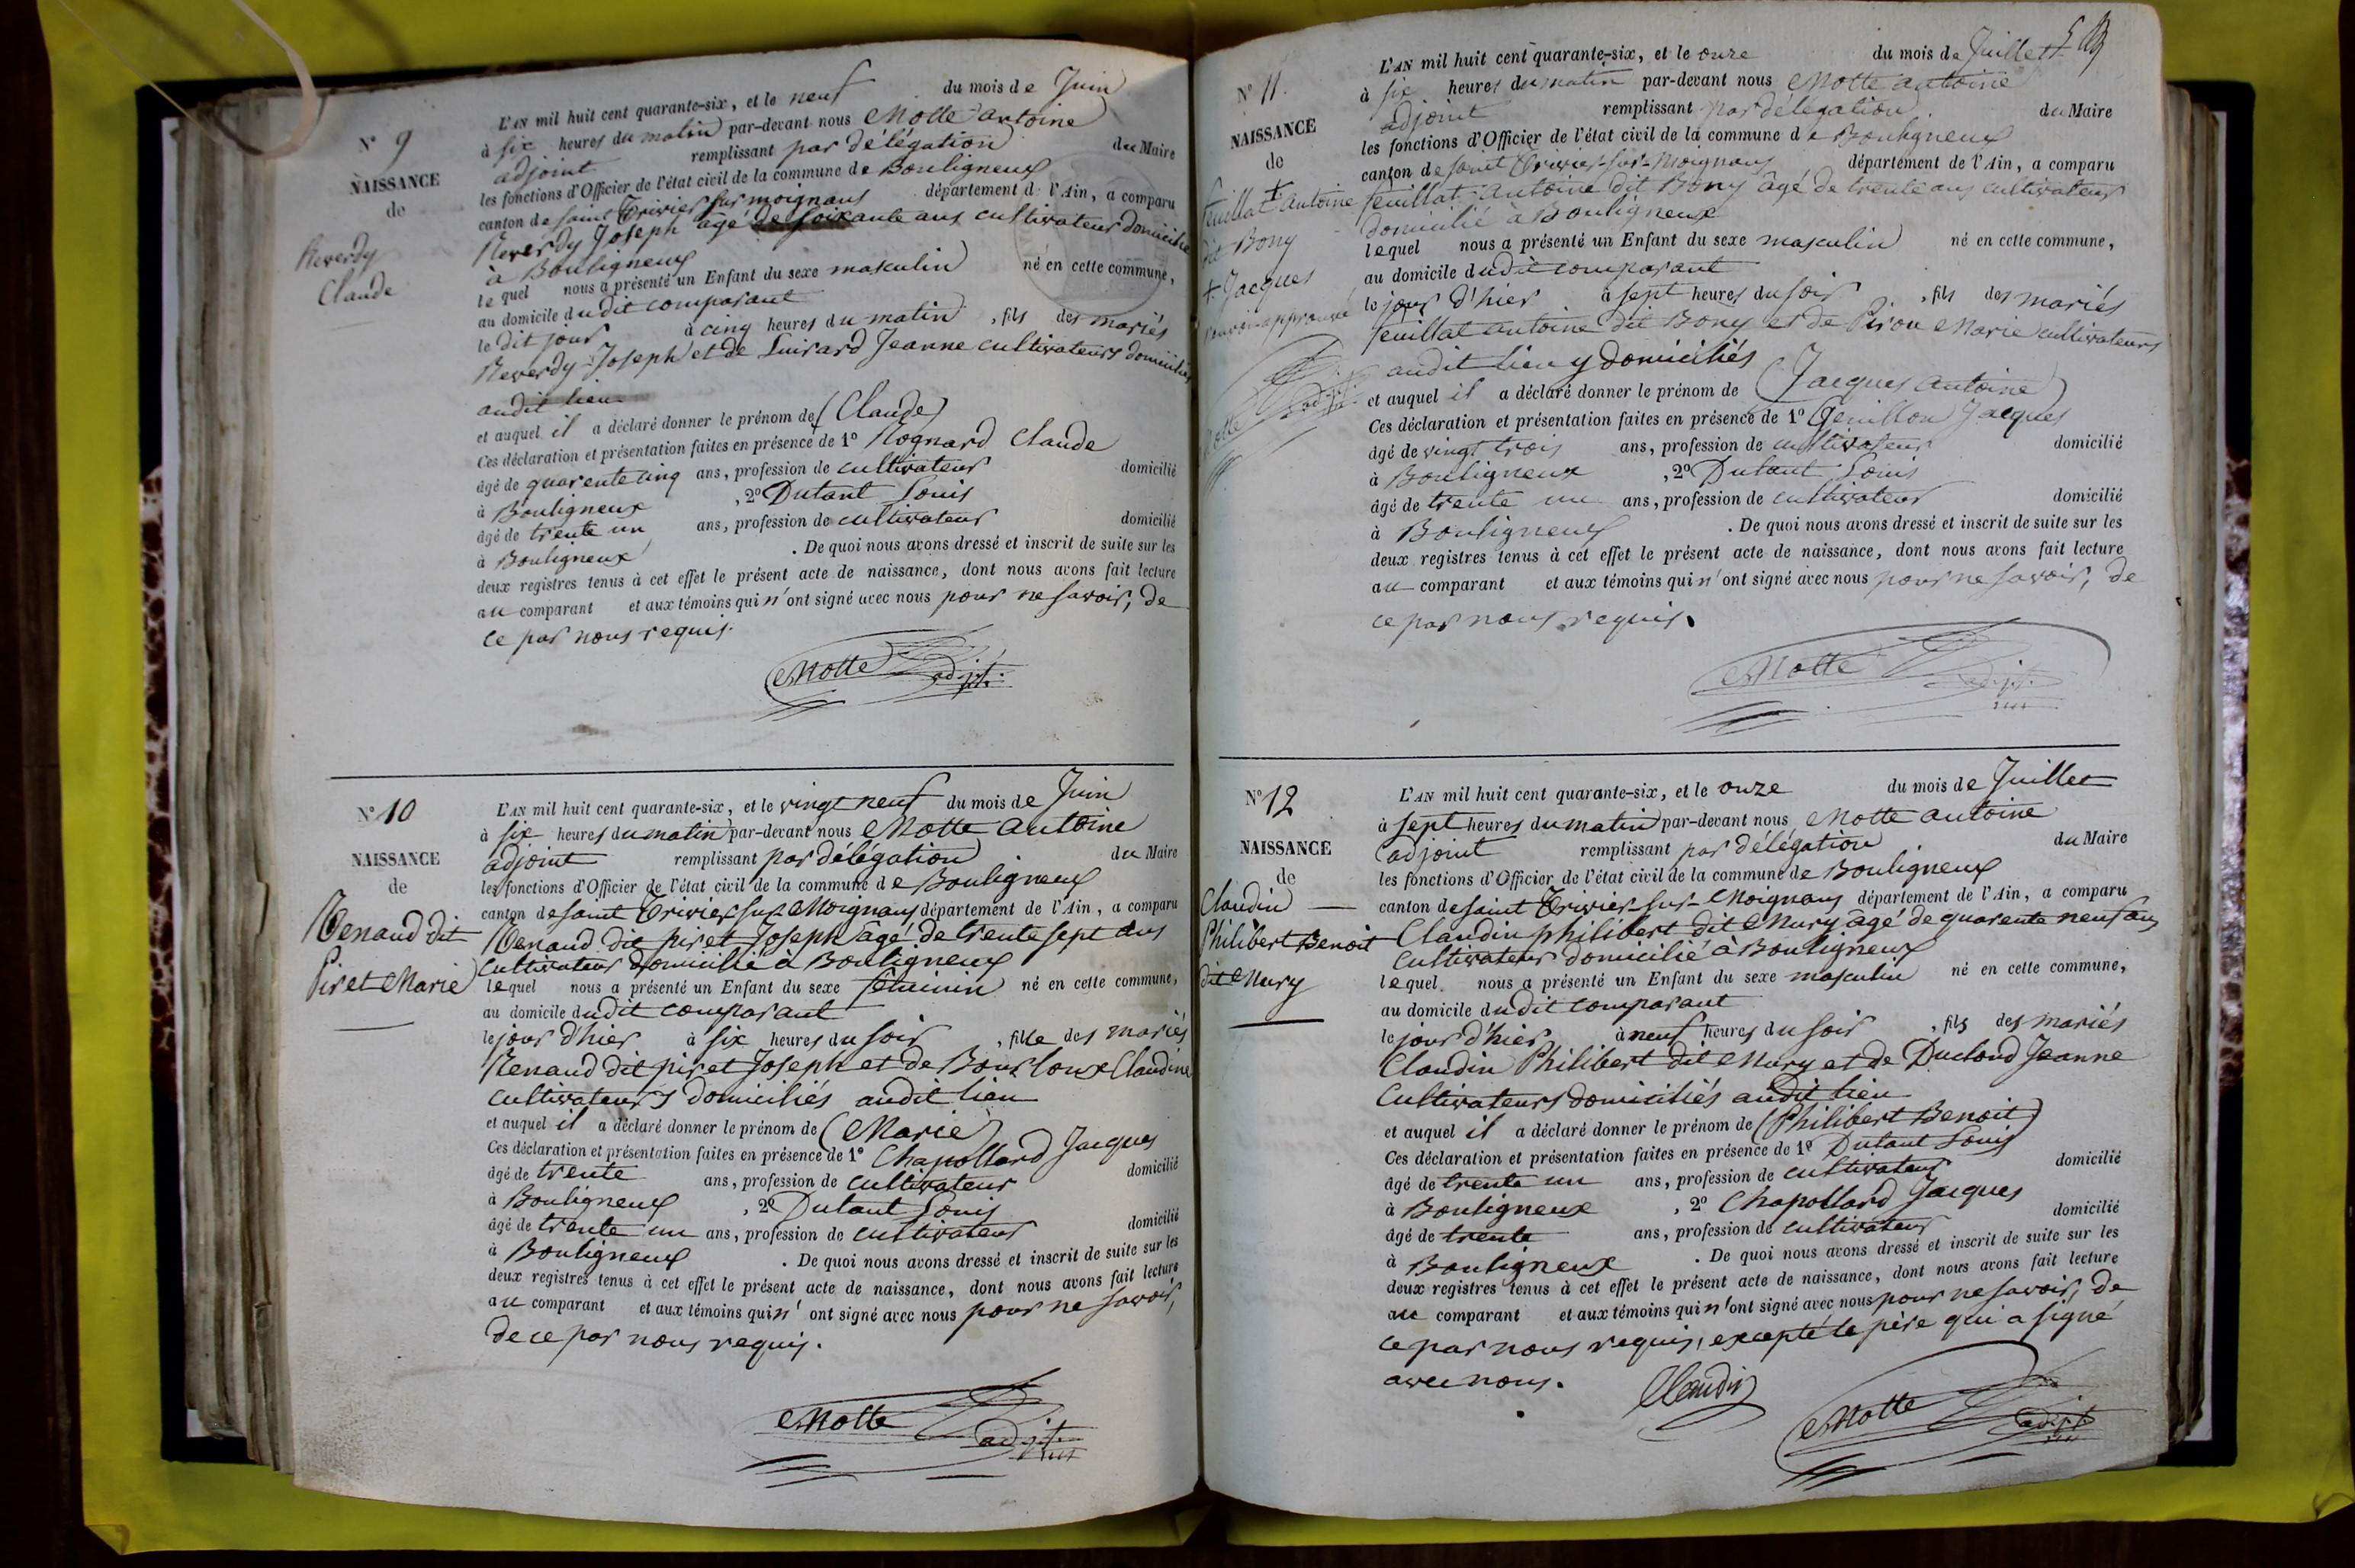 N° 9
NAISSANCE
de
Reverdy
Claude
L'AN mil huit cent quarante-six, et le neuf du mois de Juin
à six heures du matin par-devant nous Motte antoine
adjoint remplissant par délégation du Maire
les fonctions d'Officier de l'état civil de la commune de Bouligneux
canton de saint Trivier sur moignans département d l'Ain, a comparu
Reverdy Joseph âgé de soixante ans cultivateur domicilié
à Bouligneux
lequel nous a présenté un Enfant du sexe masculin né en cette commune,
au domicile dudit comparant
le dit jour à cinq heures du matin, fils des mariés
Reverdy Joseph et de Luisard Jeanne cultivateurs domiciliés
audit lieu
et auquel il a déclaré donner le prénom de (Claude)
Ces déclaration et présentation faites en présence de 1° Rognard Claude
âgé de quarente cinq ans, profession de cultivateur domicilié
à Bouligneux, 2° Dutant Louis
âgé de trente un ans, profession de cultivateur domicilié
à Bouligneux. De quoi nous avons dressé et inscrit de suite sur les
deux registres tenus à cet effet le présent acte de naissance, dont nous avons fait lecture
au comparant et aux témoins qui n'ont signé avec nous pour ne savoir, de
ce par nous requis.
Motte adjt.
N° 10
NAISSANCE
de
Renaud dit
Piret Marie
L'AN mil huit cent quarante-six, et le vingt neuf du mois de Juin
à six heures du matin par-devant nous Motte antoine
adjoint remplissant par délégation du Maire
les fonctions d'Officier de l'état civil de la commune de Bouligneux
canton de saint Trivier sur Moignans département de l'Ain, a comparu
Renaud dit piret Joseph âgé de trente sept ans
cultivateur domicilié à Bouligneux
lequel nous a présenté un Enfant du sexe féminin né en cette commune,
au domicile dudit comparant
le jour d'hier à six heures du soir, fille des mariés
Renaud dit piret Joseph et de Bourloux Claudine
cultivateurs domiciliés audit lieu
et auquel il a déclaré donner le prénom de (Marie)
Ces déclaration et présentation faites en présence de 1° Chapollard Jacques
âgé de trente ans, profession de cultivateur domicilié
à Bouligneux, 2° Dutant Louis
âgé de trente un ans, profession de cultivateur domicilié
à Bouligneux. De quoi nous avons dressé et inscrit de suite sur les
deux registres tenus à cet effet le présent acte de naissance, dont nous avons fait lecture
au comparant et aux témoins qui n'ont signé avec nous pour ne savoir,
de ce par nous requis.
Motte adjt.
N° 11.
NAISSANCE
de
feuillat + antoine
dit Bony
+ Jacques
renvoi approuvé
Motte adjt.
L'AN mil huit cent quarante-six, et le onze du mois de Juillet
à six heures du matin par-devant nous Motte antoine
adjoint remplissant par délégation du Maire
les fonctions d'Officier de l'état civil de la commune de Bouligneux
canton de saint Trivier-sur-Moignans département de l'Ain, a comparu
feuillat antoine dit Bony âgé de trente ans cultivateur
domicilié à Bouligneux
lequel nous a présenté un Enfant du sexe masculin né en cette commune,
au domicile dudit comparant
le jour d'hier à sept heures du soir, fils des mariés
feuillat antoine dit Bony et de Pirou Marie cultivateurs
audit lieu y domiciliés
et auquel il a déclaré donner le prénom de (Jacques antoine)
Ces déclaration et présentation faites en présence de 1° Genillon Jacques
âgé de vingt trois ans, profession de cultivateur domicilié
à Bouligneux, 2° Dutant Louis
âgé de trente un ans, profession de cultivateur domicilié
à Bouligneux. De quoi nous avons dressé et inscrit de suite sur les
deux registres tenus à cet effet le présent acte de naissance, dont nous avons fait lecture
au comparant et aux témoins qui n'ont signé avec nous pour ne savoir, de
ce par nous requis.
Motte adjt.
N° 12
NAISSANCE
de
Claudin
Philibert Benoit
dit Mury
L'AN mil huit cent quarante-six, et le onze du mois de Juillet
à sept heures du matin par-devant nous Motte antoine
adjoint remplissant par délégation du Maire
les fonctions d'Officier de l'état civil de la commune de Bouligneux
canton de saint Trivier-sur-Moignans département de l'Ain, a comparu
Claudin philibert dit Mury âgé de quarente neuf ans
cultivateur domicilié à Bouligneux
lequel nous a présenté un Enfant du sexe masculin né en cette commune,
au domicile dudit comparant
le jour d'hier à neuf heures du soir, fils des mariés
Claudin Philibert dit Mury et de Ducloud Jeanne
cultivateurs domiciliés audit lieu
et auquel il a déclaré donner le prénom de (Philibert Benoit)
Ces déclaration et présentation faites en présence de 1° Dutant Louis
âgé de trente un ans, profession de cultivateur domicilié
à Bouligneux, 2° Chapollard Jacques
âgé de trente ans, profession de cultivateur domicilié
à Bouligneux. De quoi nous avons dressé et inscrit de suite sur les
deux registres tenus à cet effet le présent acte de naissance, dont nous avons fait lecture
au comparant et aux témoins qui n'ont signé avec nous pour ne savoir, de
ce par nous requis, excepté le père qui a signé
avec nous.
Claudin
Motte adjt